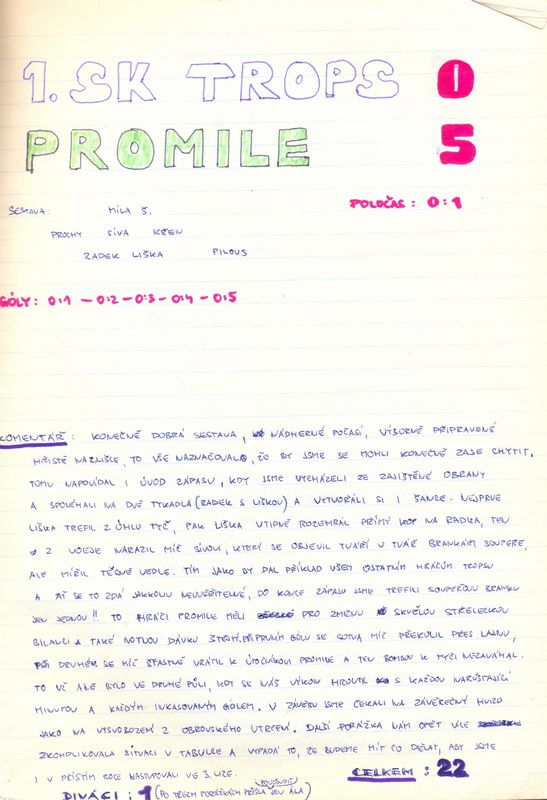 1. SK TROPS 0
PROMILE 5
POLOČAS: 0:1
SESTAVA: MÍLA Š.
PROCHY SÍVA KŘEN
RADEK LIŠKA PILOUS
GÓLY: 0:1 - 0:2 - 0:3 - 0:4 - 0:5
KOMENTÁŘ: KONEČNĚ DOBRÁ SESTAVA, NÁDHERNÉ POČASÍ, VÝBORNĚ PŘIPRAVENÉ
HŘIŠTĚ NAŽNIŠCE, TO VŠE NAZNAČOVALO, ŽE BY JSME SE MOHLI KONEČNĚ ZASE CHYTIT.
TOMU NAPOVÍDAL I ÚVOD ZÁPASU, KDY JSME VYCHÁZELI ZE ZAJIŠTĚNÉ OBRANY
A SPOLÉHALI NA DVĚ TYKADLA (RADEK S LIŠKOU) A VYTVOŘÁLI SI I ŠANCE. NEJPRVE
LIŠKA TREFIL Z ÚHLU TYČ, PAK LIŠKA VTIPNĚ ROZEHRÁL PŘÍMÝ KOP NA RADKA, TEN
Z VOLEJE NARAZIL MÍČ SÍVOVI, KTERÝ SE OBJEVIL TVÁŘÍ V TVÁŘ BRANKÁŘI SOUPEŘE,
ALE MÍŘIL TĚSNĚ VEDLE. TÍM JAKO BY DAL PŘÍKLAD VŠEM OSTATNÍM HRÁČŮM TROPSU
A AŤ SE TO ZDÁ JAKKOLIV NEUVĚŘITELNÉ, DO KONCE ZÁPASU JSME TREFILI SOUPEŘOVU BRANKU
JEN JEDNOU!! TO HRÁČI PROMILE MĚLI PRO ZMĚNU SKVĚLOU STŘELECKOU
BILANCI A TAKÉ NOTNOU DÁVKU ŠTĚSTÍ. PŘI PRVNÍM GÓLU SE SOTVA MÍČ PŘEKULIL PŘES LAJNU,
PŘI DRUHÉM SE MÍČ ŠŤASTNĚ VRÁTIL K ÚTOČNÍKOVI PROMILE A TEN BOMBOU K TYČI NEZAVÁHAL.
TO UŽ ALE BYLO VE DRUHÉ PŮLI, KDY SE NÁŠ VÝKON HROUTIL S KAŽDOU NARŮSTAJÍCÍ
MINUTOU A KAŽDÝM INKASOVANÝM GÓLEM. V ZÁVĚRU JSME ČEKALI NA ZÁVĚREČNÝ HVIZD
JAKO NA VYSVOBOZENÍ Z OBROVSKÉHO UTRPENÍ. DALŠÍ PORÁŽKA NÁM OPĚT VÍCE
ZKOMPLIKOVALA SITUACI V TABULCE A VYPADÁ TO, ŽE BUDEME MÍT CO DĚLAT, ABY JSME
I V PŘÍŠTÍM ROCE NASTUPOVALI VE 3. LIZE.
CELKEM: 22
DIVÁCI: 1 (PO TŘECH PORÁŽKÁCH PŘIŠLA POVZBUDIT JEN ÁLA)